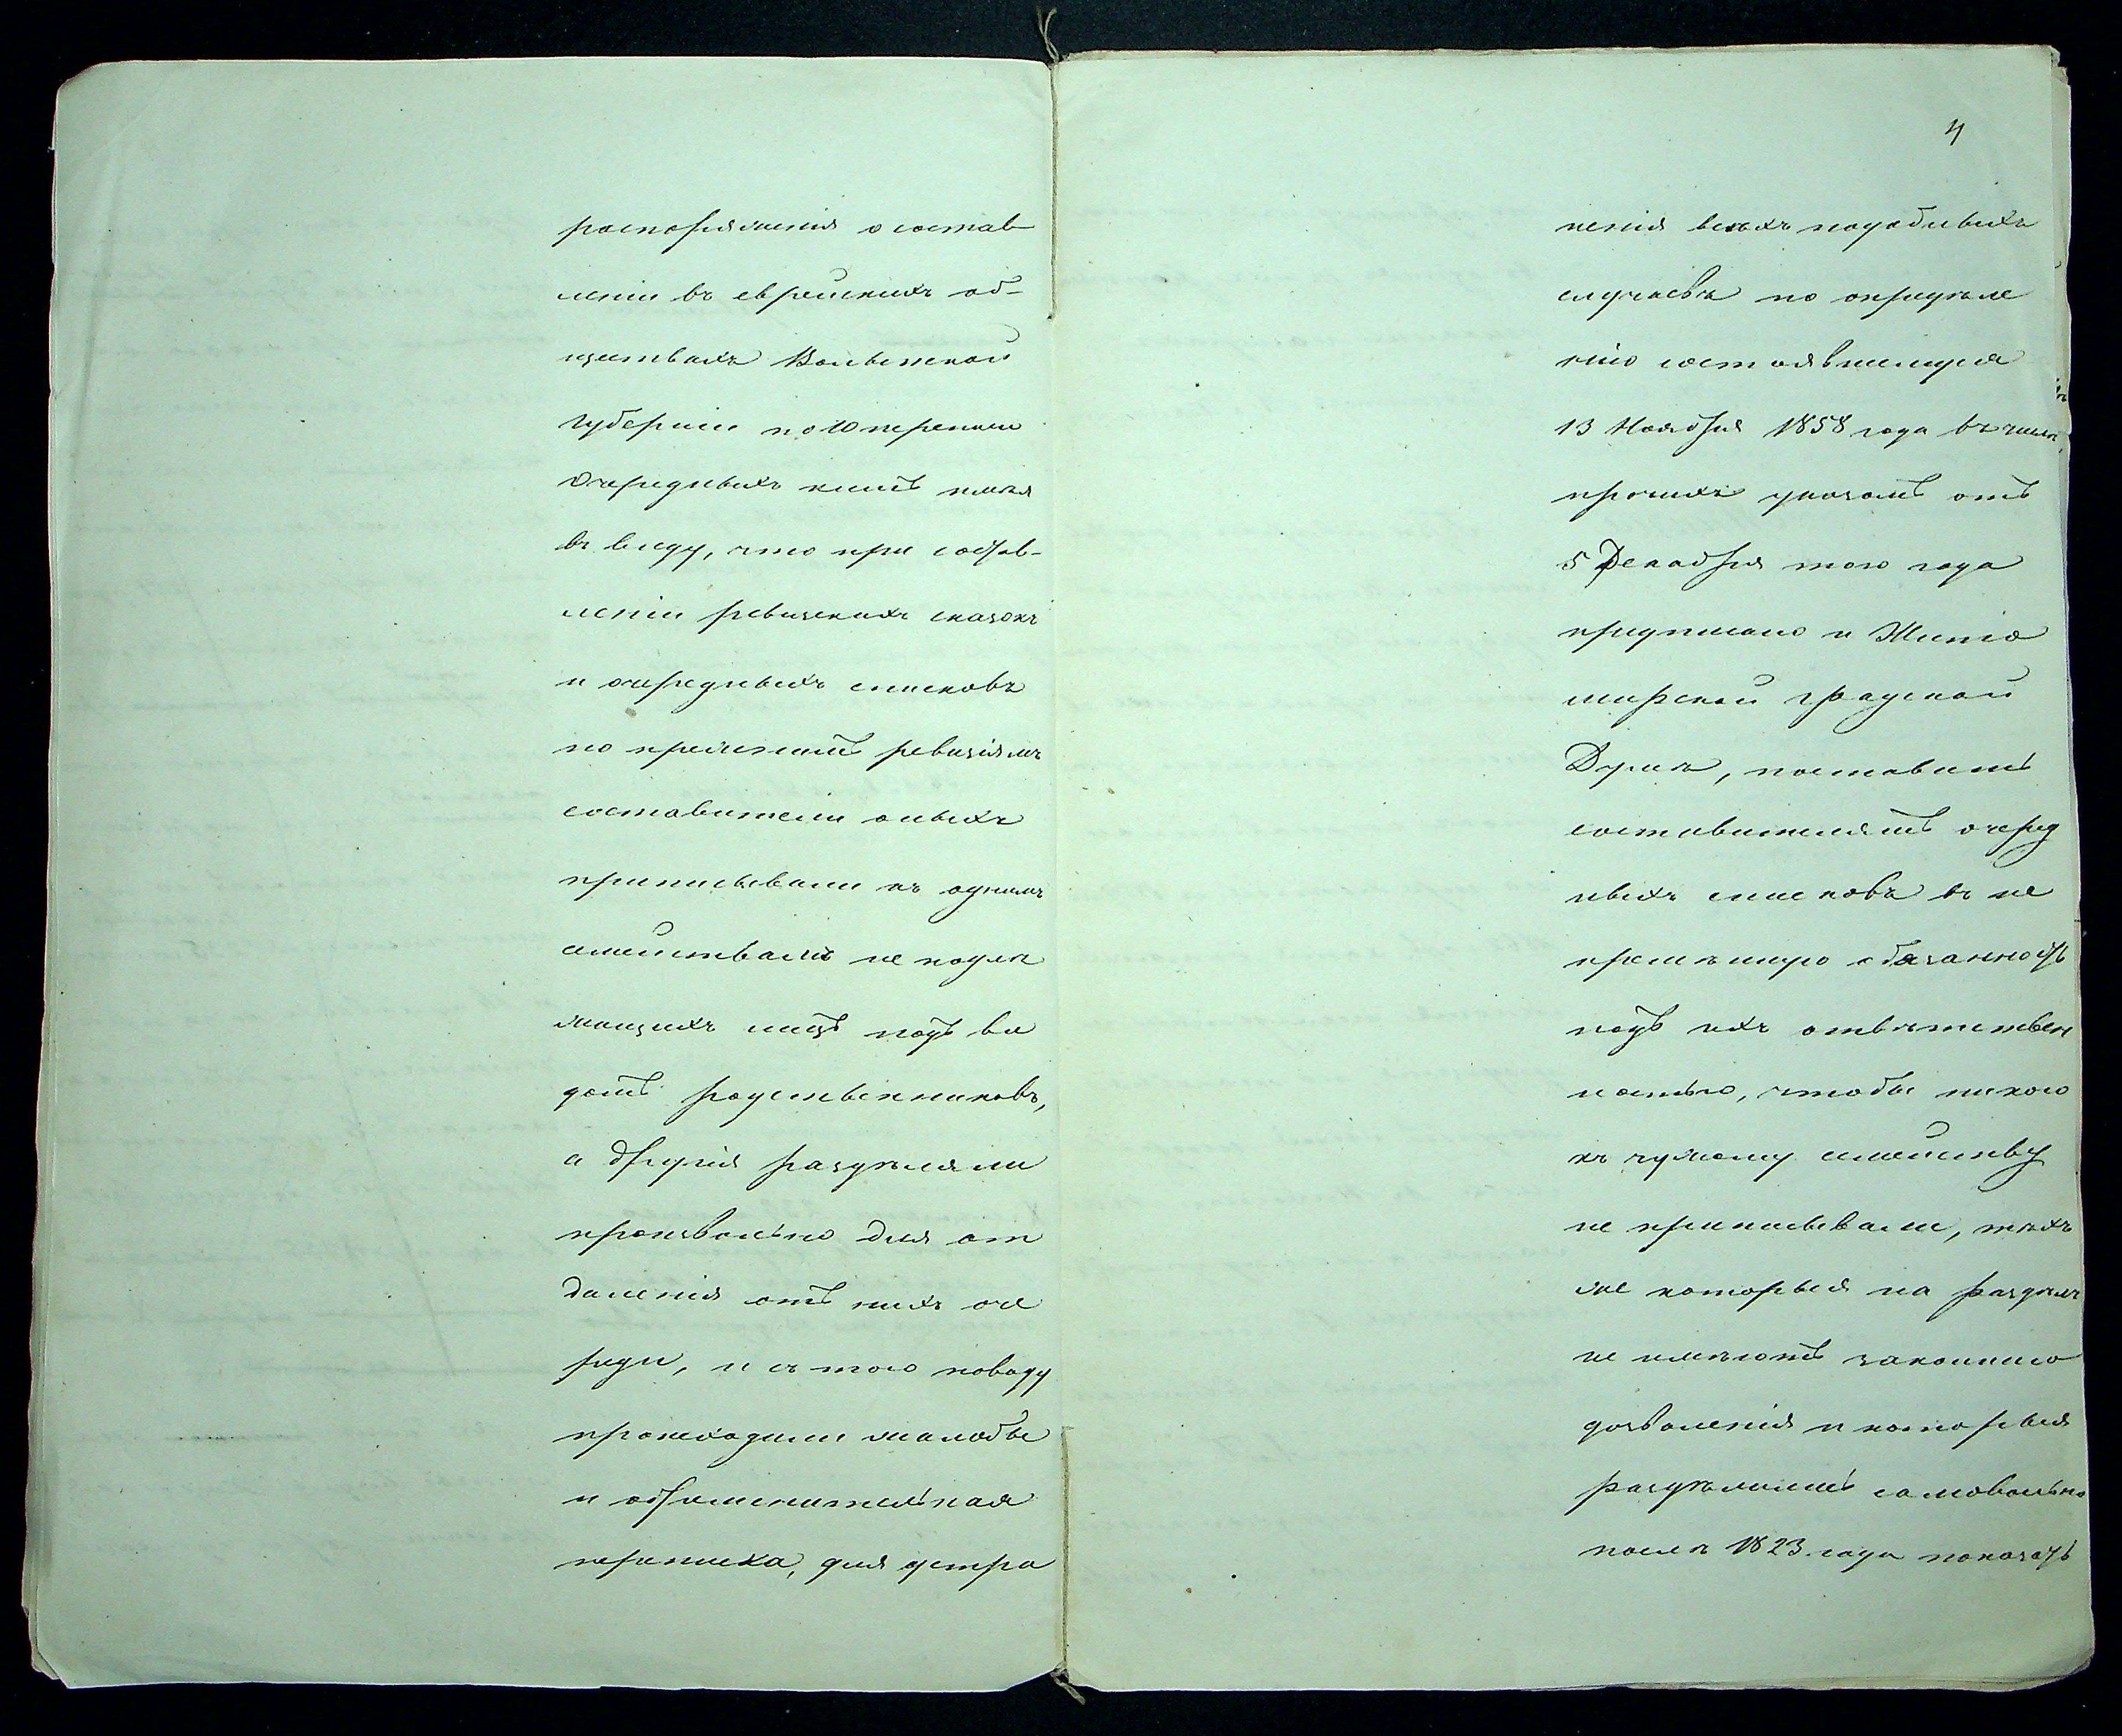 распоряженія о состав
леніи въ еврейскихъ об-
ществахъ Волынской
губерніи по 10 перепи
очередныхъ книгъ имѣя
въ виду, что при состав-
леніи ревизскихъ сказокъ
и очередныхъ списковъ
по прежнимъ ревизіямъ
составители оныхъ
приписывали къ однимъ
семействамъ не подле
жащихъ лицъ подъ ви
домъ родственниковъ,
а другія раздѣляли
произвольно для от
даленія отъ нихъ оче
реди, и съ того поводу
происходили жалобы
и обременительная
переписка, для устра
4
ненія всѣхъ подобныхъ
случаевъ по опредѣле
нію состоявшемуся
13 Ноября 1858 года въ числѣ
прочихъ указомъ отъ
5 Декабря того года
предписано и Жито
мирской градской
Думѣ, поставить
составителямъ очеред
ныхъ списковъ въ не
премѣнную обязанность
подъ ихъ отвѣтствен
ностью, чтобы никого
къ чужому семейству
не приписывали, тѣхъ
же которыя на раздѣлъ
не имѣютъ законнаго
дозволенія и которыя
раздѣлились самовольно
послѣ 1823. года показать